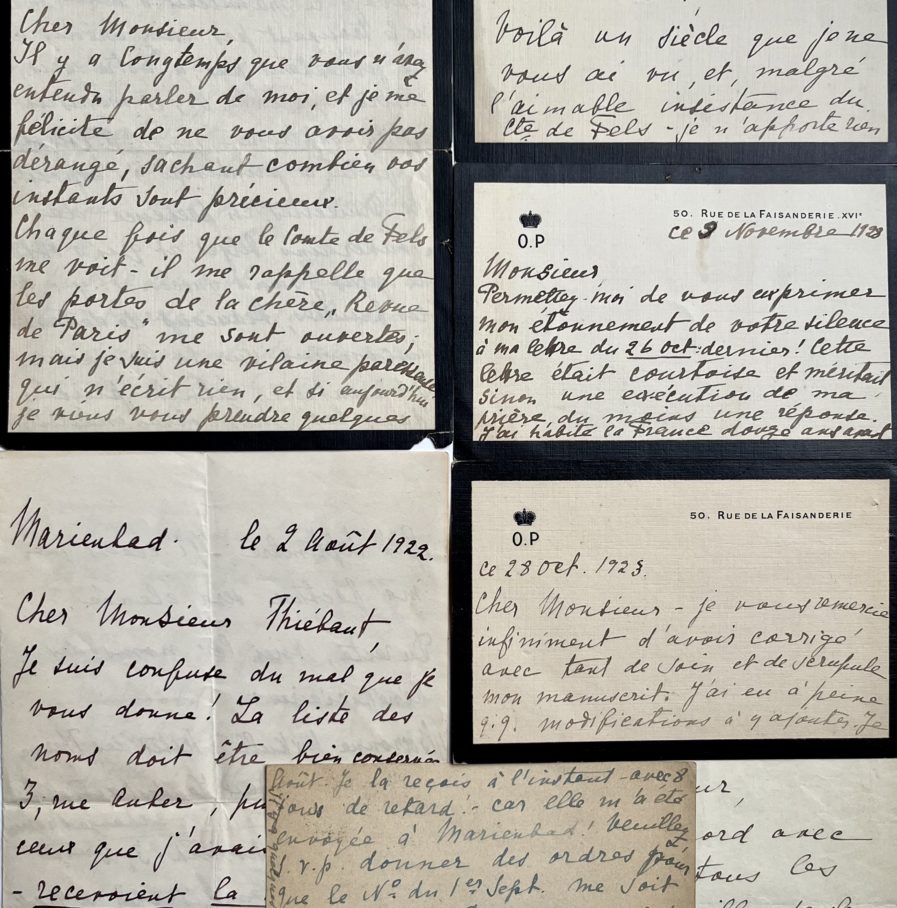 Cher Monsieur,
Il y a longtemps que vous n'avez
entendu parler de moi, et je me
félicite de ne vous avoir pas
dérangé, sachant combien vos
instants sont précieux.
Chaque fois que le Comte de Fels
me voit - il me rappelle que
les portes de la chère „Revue
de Paris" me sont ouvertes,
mais je suis une vilaine paresseuse
qui n'écrit rien, et si aujourd'hui
je viens vous prendre quelques
Voilà un siècle que je ne
vous ai vu, et, malgré
l'aimable insistance du
Cte de Fels - je n'apporte rien
O.P
50. RUE DE LA FAISANDERIE. XVIe
ce 3 Novembre 1923
Monsieur
Permettez-moi de vous exprimer
mon étonnement de votre silence
à ma lettre du 26 oct. dernier! Cette
lettre était courtoise et méritait
sinon une exécution de ma
prière du moins une réponse.
J'ai habité la France douze ans avant
O.P
50. RUE DE LA FAISANDERIE
ce 28 Oct. 1923.
Cher Monsieur - je vous remercie
infiniment d'avoir corrigé
avec tant de soin et de scrupule
mon manuscrit. J'ai eu à peine
q.q. modifications à y ajouter. Je
Marienbad. le 2 Août 1922.
Cher Monsieur Thiébaut
Je suis confuse du mal que je
vous donne! La liste des
noms doit être bien conservée
3, rue Auber,
ceux que j'avais
- recevoient la
Août. Je la reçois à l'instant - avec 8
jours de retard! - car elle m'a été
envoyée à Marienbad! Veuillez
s. v. p. donner des ordres pour
que le No du 1er Sept. me soit
ord avec
tous les